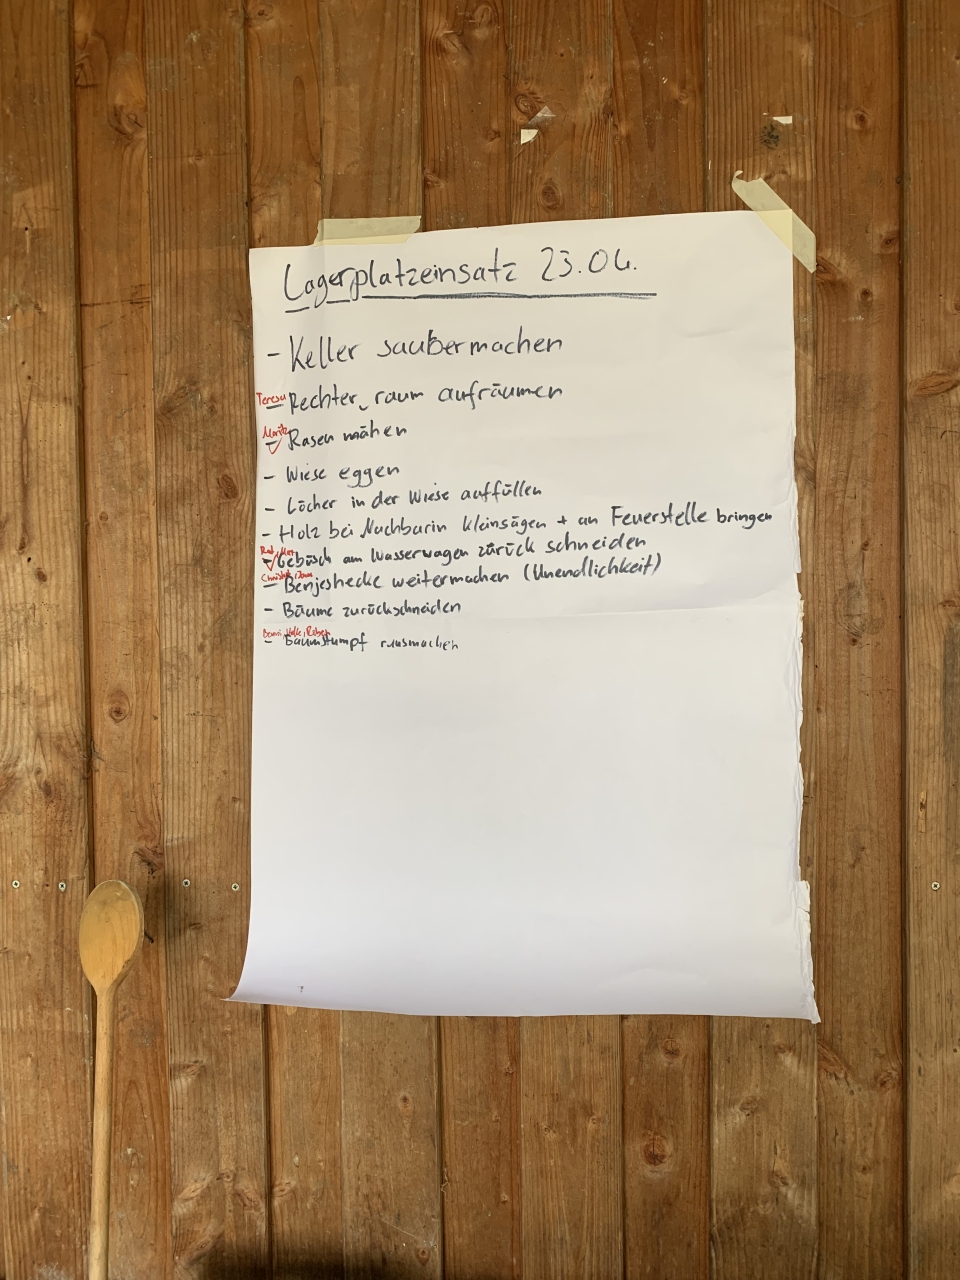 Lagerplatzeinsatz 23.04.
- Keller saubermachen
Teresa
- Rechter raum aufräumen
Moritz
- Rasen mähen
- Wiese eggen
- Löcher in der Wiese auffüllen
- Holz bei Nachbarin kleinsägen + an Feuerstelle bringen
- Gebüsch am Wasserwagen zurück schneiden
- Benjeshecke weitermachen (Unendlichkeit)
- Bäume zurückschneiden
- Baumstumpf rausmachen